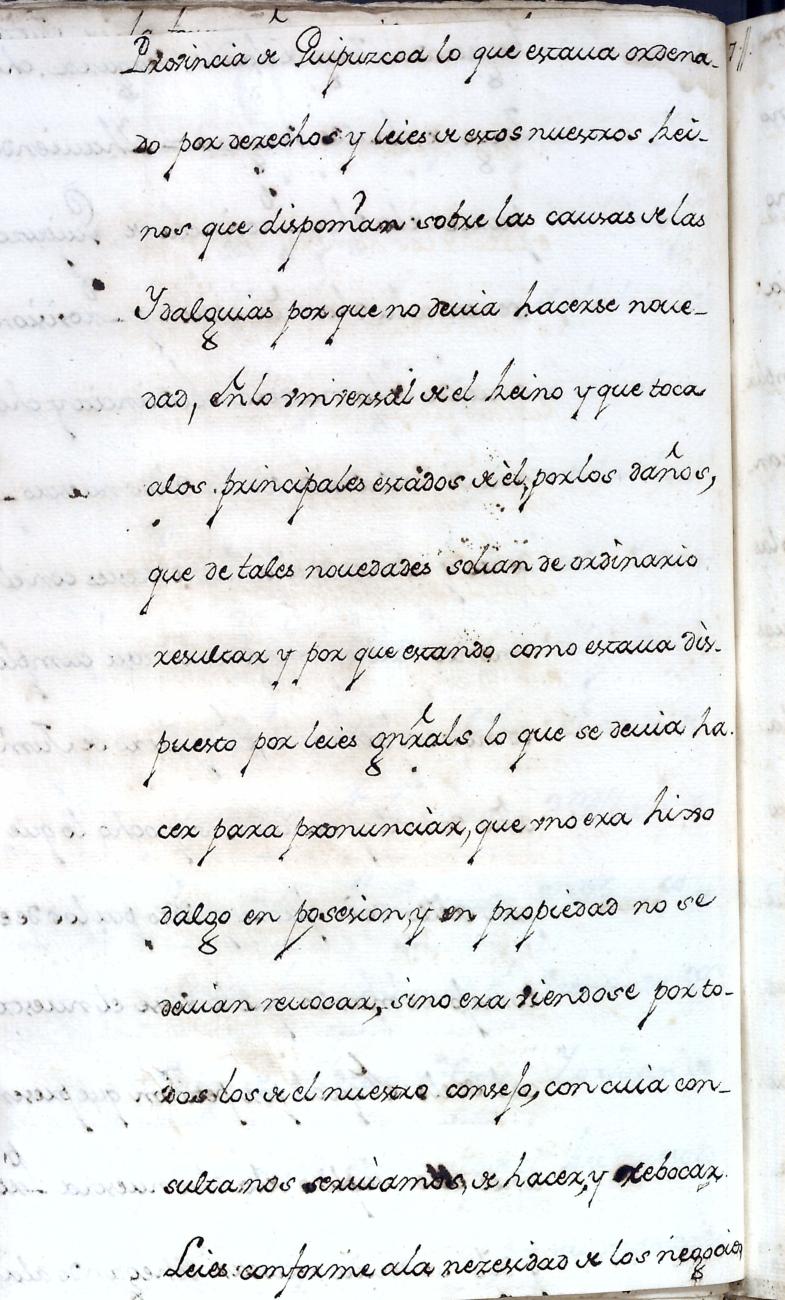 Provincia de Guipuzcoa lo que estaua ordena-
do por derechos y leies de estos nuestros Rei-
nos que disponian sobre las causas de las
Ydalguias por que no deuia hacerse noue-
dad, en lo vniversal de el Reino y que toca
alos principales estados de èl, por los daños,
que de tales nouedades solian de ordinario
resultar y por que estando como estaua dis-
puesto por leies gnrals lo que se deuia ha-
cer para pronunciàr, que vno era hixo
dalgo en posesion, y en propiedad no se
deuian reuocar, sino era viendose por to-
dos los de el nuestro consejo, con cuia con-
sulta nos seruiamos, de hacer, y rebocar
Leies conforme ala nezesidad de los negocios